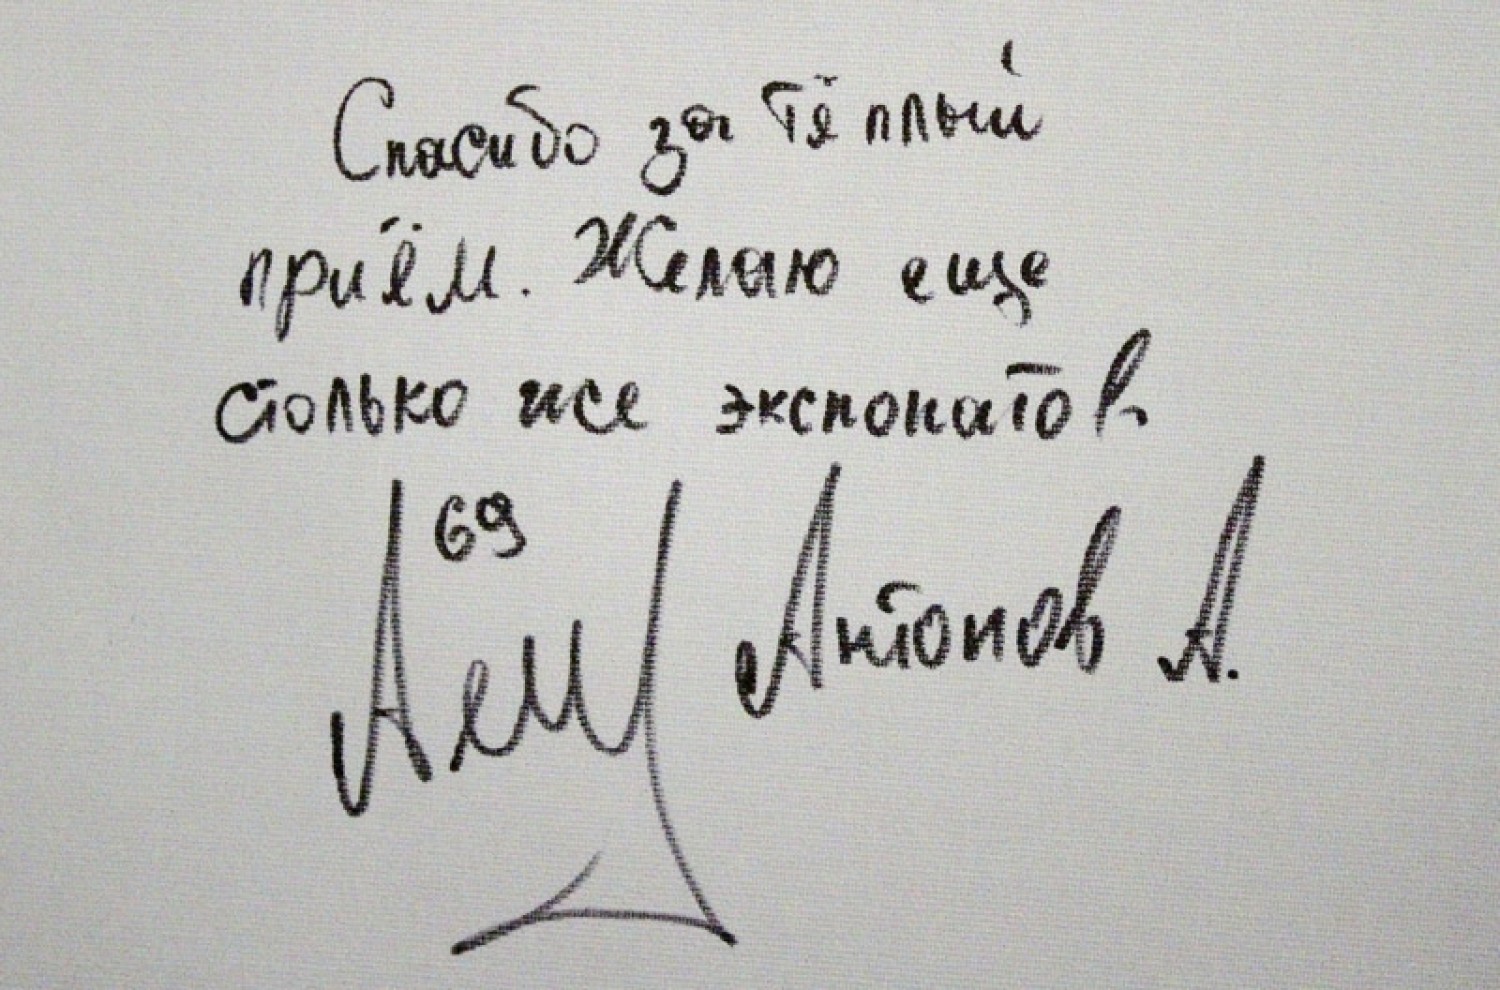 Спасибо за тёплый
приём. Желаю еще
столько же экспонатов
69
Антонов А.